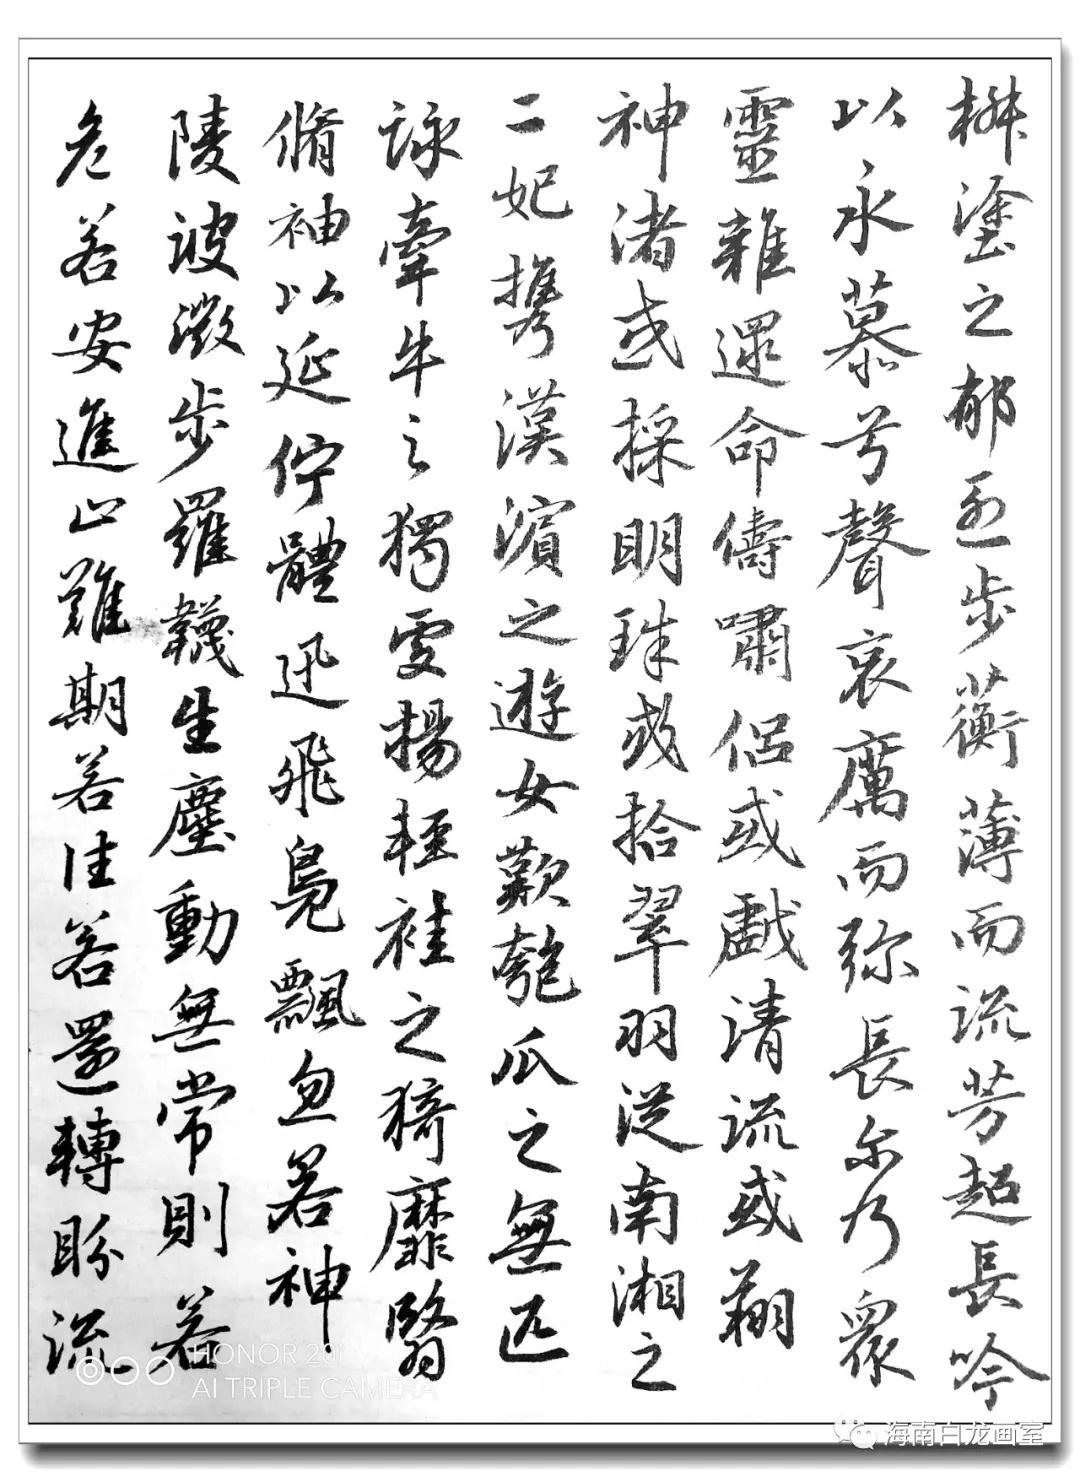 椒塗之郁烈步蘅薄而流芳超長吟
以永慕兮聲哀厲而弥長尔乃眾
靈雜遝命儔嘯侶或戲清流或翔
神渚或採明珠或拾翠羽從南湘之
二妃攜漢濱之遊女歎匏瓜之無匹
詠牽牛之獨處揚輕袿之猗靡翳
脩袖以延佇體迅飛鳧飄忽若神
陵波微步羅韈生塵動無常則若
危若安進止難期若往若還轉盼流
HONOR 20i
AI TRIPLE CAMERA
海南白龙画室